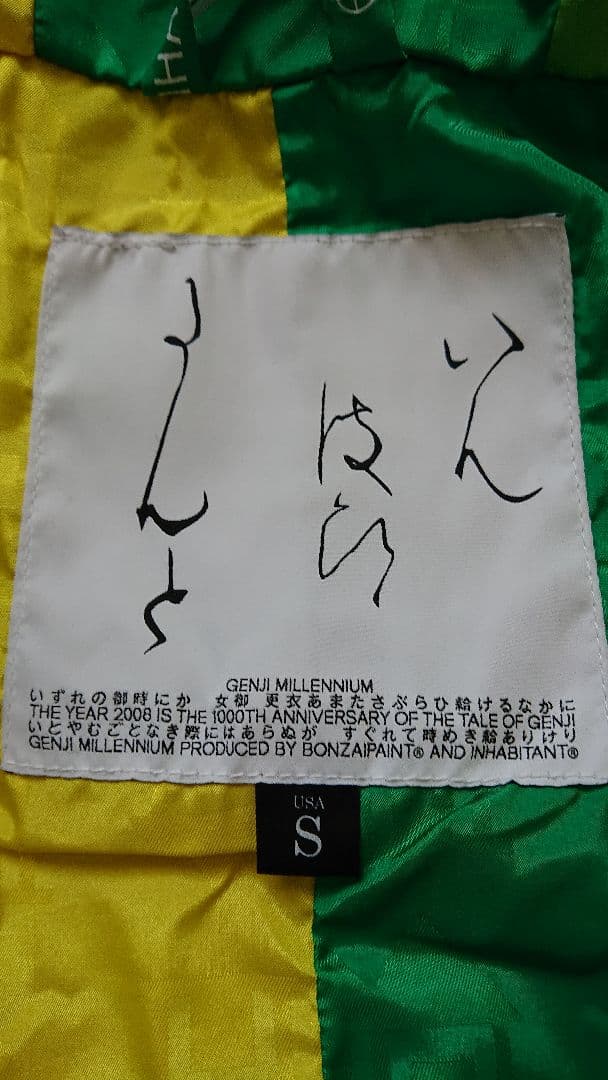 いん
はひ
たんと
GENJI MILLENNIUM
いずれの御時にか 女御 更衣あまたさぶらひ給けるなかに
THE YEAR 2008 IS THE 1000TH ANNIVERSARY OF THE TALE OF GENJI
いとやむごとなき際にはあらぬが すぐれて時めき給ありけり
GENJI MILLENNIUM PRODUCED BY BONZAIPAINT® AND INHABITANT®
USA
S